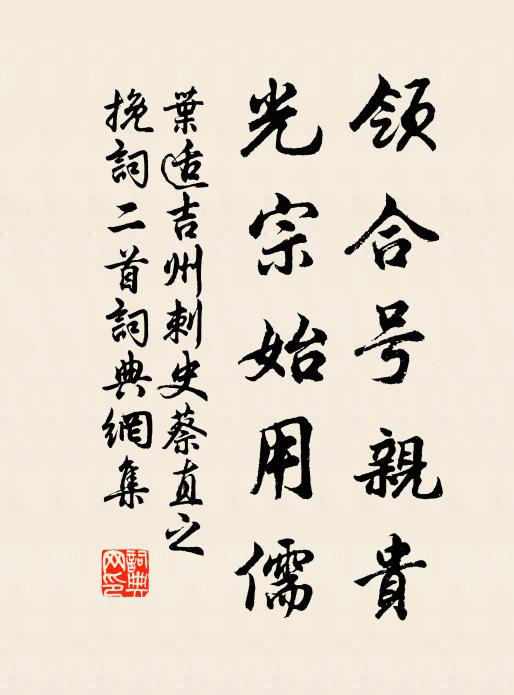 領合号親貴
光宗始用儒
葉適吉州刺史蔡直之
挽詞二首詞典網集
詞典网印